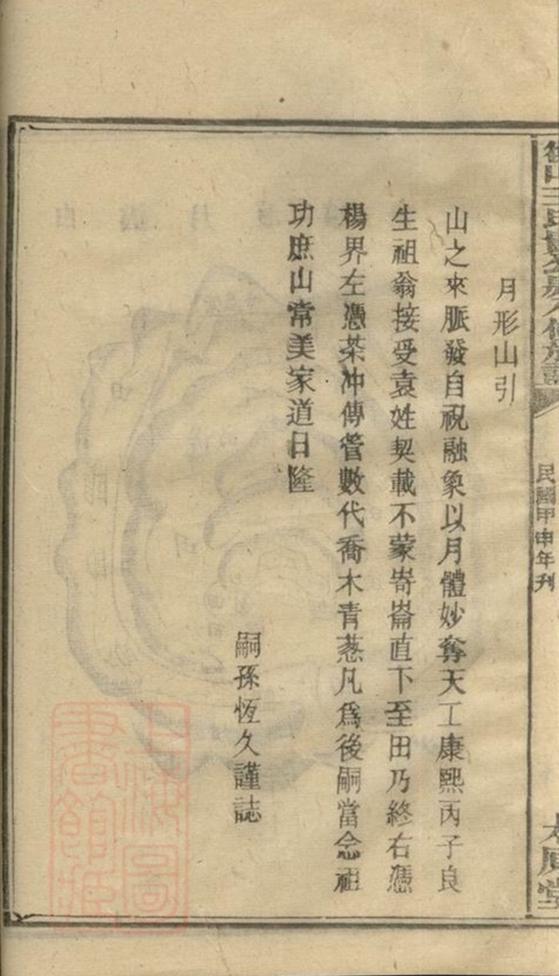 月形山引
山之來脈發自祝融象以月體妙奪天工康熙丙子良
生祖翁接受袁姓契載不蒙岢崙直下至田乃終右憑
楊界左憑茶冲傳管數代喬木青葱凡爲後嗣當念祖
功庶山常美家道日隆
嗣孫恆久謹誌
民國甲申年刊